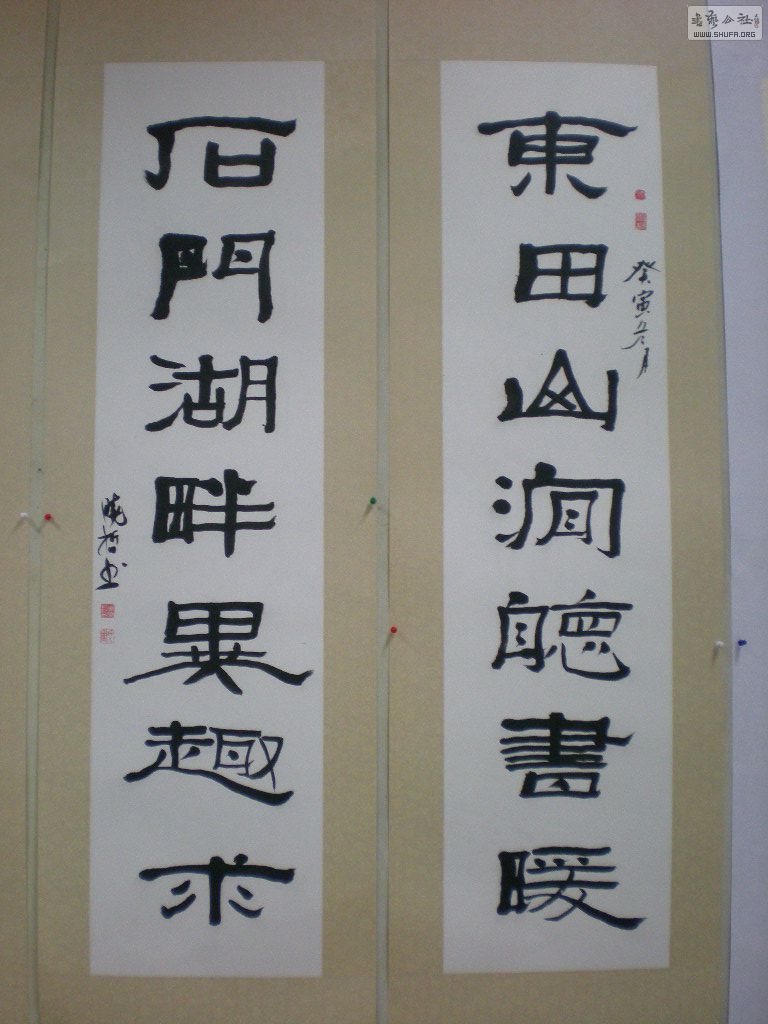 東田山澗聽書暖
癸寅冬月
石門湖畔異趣求
曉哲书
书艺公社
WWW.SHUFA.ORG